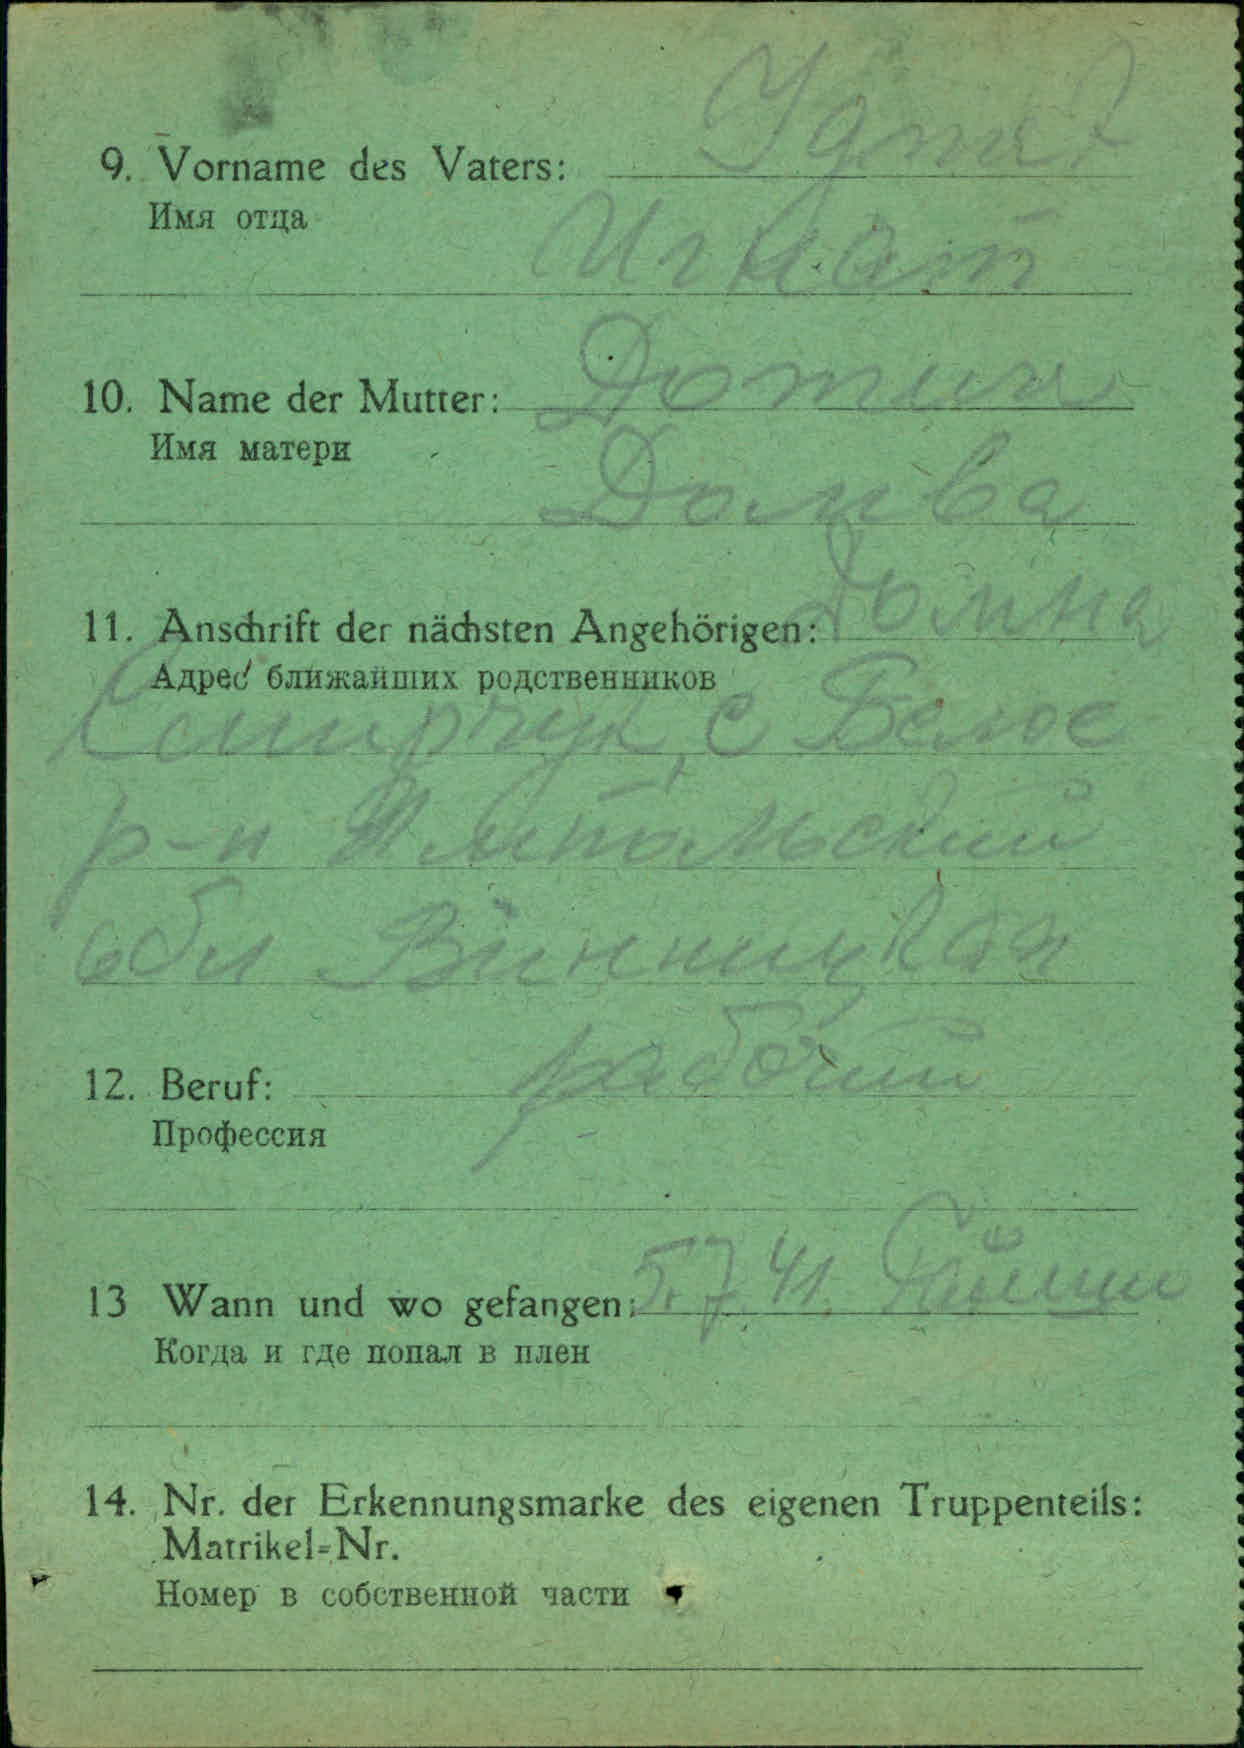 9. Vorname des Vaters:
Имя отца
Игнат
10. Name der Mutter:
Имя матери
Домва
Домна
11. Anschrift der nächsten Angehörigen:
Адрес ближайших родственников
с Белое
р-н Ямпольский
обл Винницкая
рабочий
12. Beruf:
Профессия
13 Wann und wo gefangen: 5.7.41.
Когда и где попал в плен
14. Nr. der Erkennungsmarke des eigenen Truppenteils:
Matrikel-Nr.
Номер в собственной части